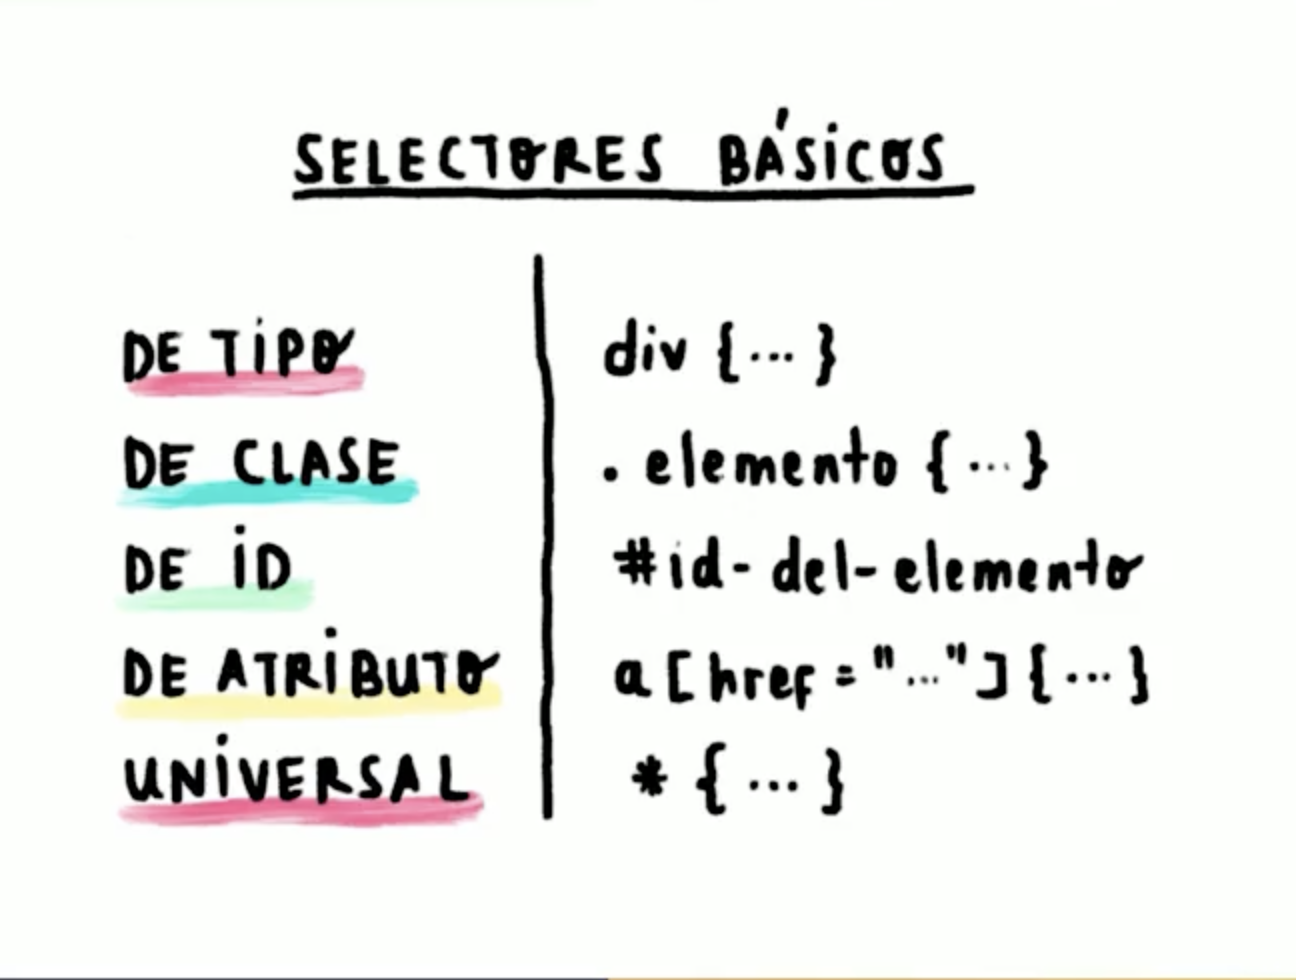 SELECTORES BÁSICOS
DE TIPO
div {...}
DE CLASE
. elemento {...}
DE ID
#id-del-elemento
DE ATRIBUTO
a[href="..."]{...}
UNIVERSAL
* {...}